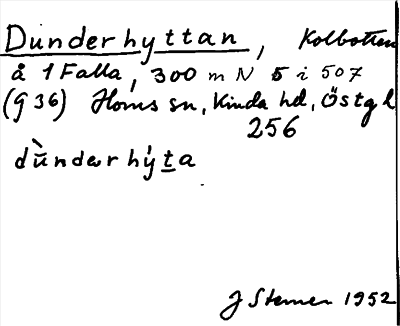 Dunderhyttan, Kolbotten
å 1 Falla, 300 m N 5 i 507
(g 36) Horns sn, Kinda hd, Östgl
256
dùndərhýta
J Sterner 1952